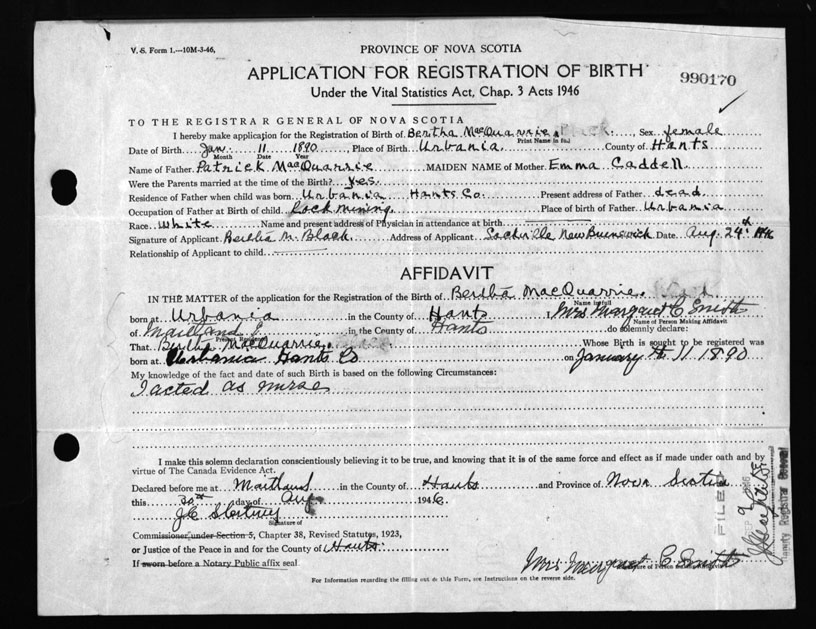 V. S. Form 1.—10M-3-46,
PROVINCE OF NOVA SCOTIA
APPLICATION FOR REGISTRATION OF BIRTH
990170
Under the Vital Statistics Act, Chap. 3 Acts 1946
TO THE REGISTRAR GENERAL OF NOVA SCOTIA
I hereby make application for the Registration of Birth of Bertha MacQuarrie Black, Sex female
Print Name in full
Date of Birth Jan. 11 1890, Place of Birth Urbania County of Hants
Month Date Year
Name of Father Patrick MacQuarrie MAIDEN NAME of Mother Emma Caddell
Were the Parents married at the time of the Birth? yes.
Residence of Father when child was born Urbania Hants Co. Present address of Father dead.
Occupation of Father at Birth of child Rock mining. Place of birth of Father Urbania
Race White Name and present address of Physician in attendance at birth
Signature of Applicant Bertha M. Black Address of Applicant Sackville New Brunswick Date Aug. 24th 1946
Relationship of Applicant to child
AFFIDAVIT
IN THE MATTER of the application for the Registration of Birth of Bertha MacQuarrie.
Name in full
born at Urbania in the County of Hants, Mrs Margaret C Smith
Name of Person Making Affidavit
of Maitland in the County of Hants do solemnly declare:
That Birtha MacQuarrie Whose Birth is sought to be registered was
born at Urbania Hants Co on January 11 1890
My knowledge of the fact and date of such Birth is based on the following Circumstances:
I acted as nurse
I make this solemn declaration conscientiously believing it to be true, and knowing that it is of the same force and effect as if made under oath and by
virtue of The Canada Evidence Act.
Declared before me at Maitland in the County of Hants and Province of Nova Scotia
this 30th day of Aug 1946.
Signature of
Commissioner, under Section 5, Chapter 38, Revised Statutes, 1923,
or Justice of the Peace in and for the County of Hants.
If sworn before a Notary Public affix seal
Mrs Margaret C Smith
For Information regarding the filling out of this Form, see Instructions on the reverse side.
FILED
Deputy Registrar General